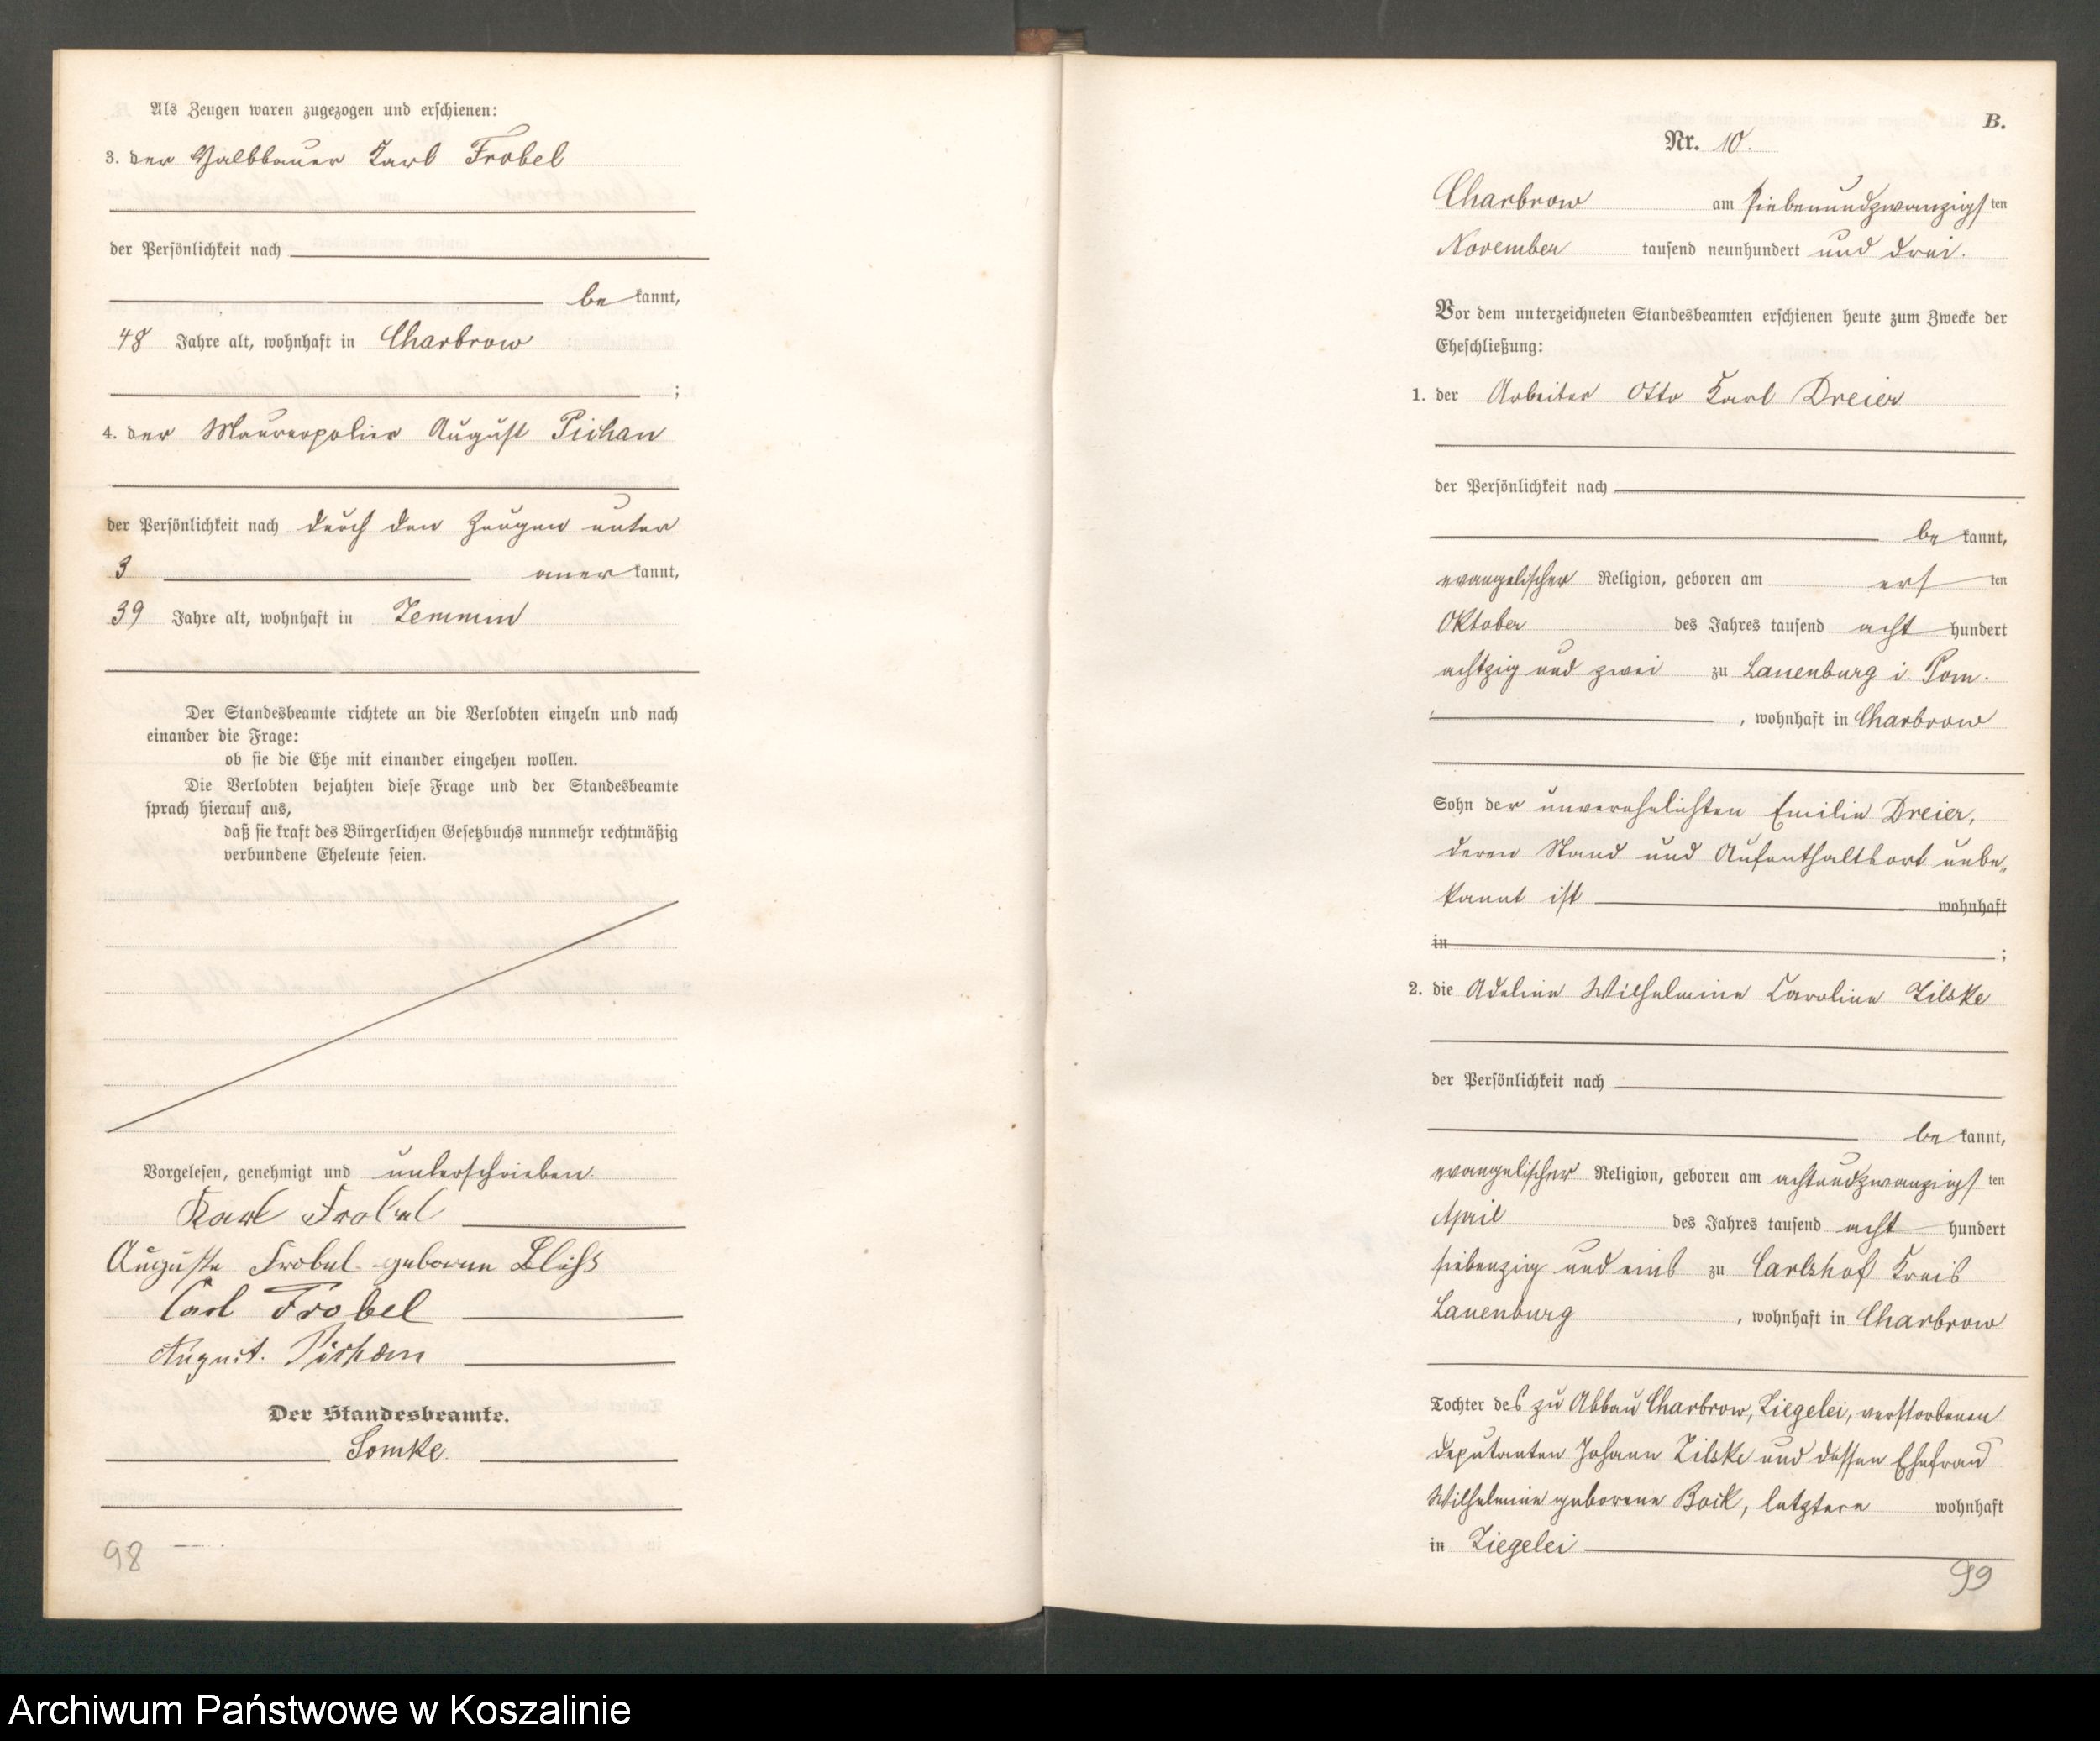 Als Zeugen waren zugezogen und erschienen:
3. der Halbbauer Karl Frobel
der Persönlichkeit nach
be kannt,
48 Jahre alt, wohnhaft in Charbrow
;
4. der Maurerpolier August Pichan
der Persönlichkeit nach durch den Zeugen unter
3 aner kannt,
39 Jahre alt, wohnhaft in Zemmin
Der Standesbeamte richtete an die Verlobten einzeln und nach
einander die Frage:
ob sie die Ehe mit einander eingehen wollen.
Die Verlobten bejahten diese Frage und der Standesbeamte
sprach hierauf aus,
daß sie kraft des Bürgerlichen Gesetzbuchs nunmehr rechtmäßig
verbundene Eheleute seien.
Vorgelesen, genehmigt und unterschrieben.
Karl Frobel
Auguste Frobel geborene
Carl Frobel
August. Pichan
Der Standesbeamte.
Lomke
98
B.
Nr. 10.
Charbrow am siebenundzwanzigs ten
November tausend neunhundert und drei.
Vor dem unterzeichneten Standesbeamten erschienen heute zum Zwecke der
Eheschließung:
1. der Arbeiter Otto Karl Dreier
der Persönlichkeit nach
be kannt,
evangelischer Religion, geboren am ers ten
Oktober des Jahres tausend acht hundert
achtzig und zwei zu Lauenburg i. Pom.
, wohnhaft in Charbrow
Sohn der unverehelichten Emilie Dreier,
deren Stand und Aufenthaltsort unbe„
kannt ist wohnhaft
in ;
2. die Adeline Wilhelmine Caroline Zilske
der Persönlichkeit nach
be kannt,
evangelischer Religion, geboren am achtundzwanzigs ten
April des Jahres tausend acht hundert
siebenzig und eins zu Carlshof Kreis
Lauenburg , wohnhaft in Charbrow
Tochter des zu Abbau Charbrow, Ziegelei, verstorbenen
Deputanten Johann Zilske und dessen Ehefrau
Wilhelmine geborene Boik, letztere wohnhaft
in Ziegelei
99
Archiwum Państwowe w Koszalinie